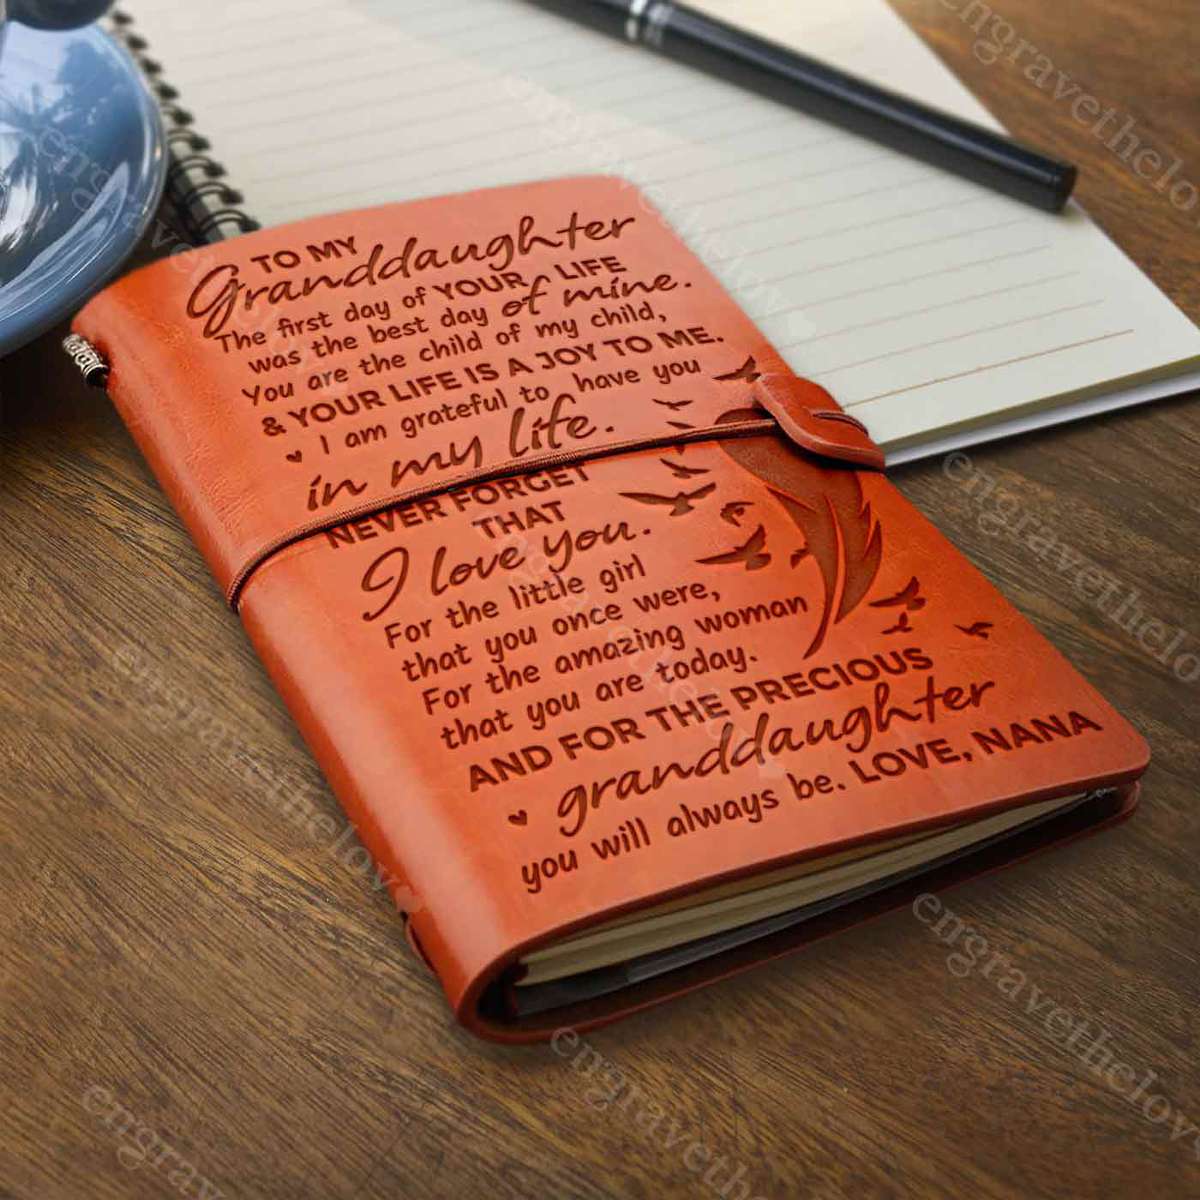 TO MY
Granddaughter
The first day of YOUR LIFE
was the best day of mine.
You are the child of my child,
& YOUR LIFE IS A JOY TO ME.
I am grateful to have you
in my life.
NEVER FORGET
THAT
I love you.
For the little girl
that you once were,
For the amazing woman
that you are today.
AND FOR THE PRECIOUS
granddaughter
you will always be. LOVE, NANA
engravethelov
engravethelov
engravethelov
engravethelov
engravethelov
engravethelov